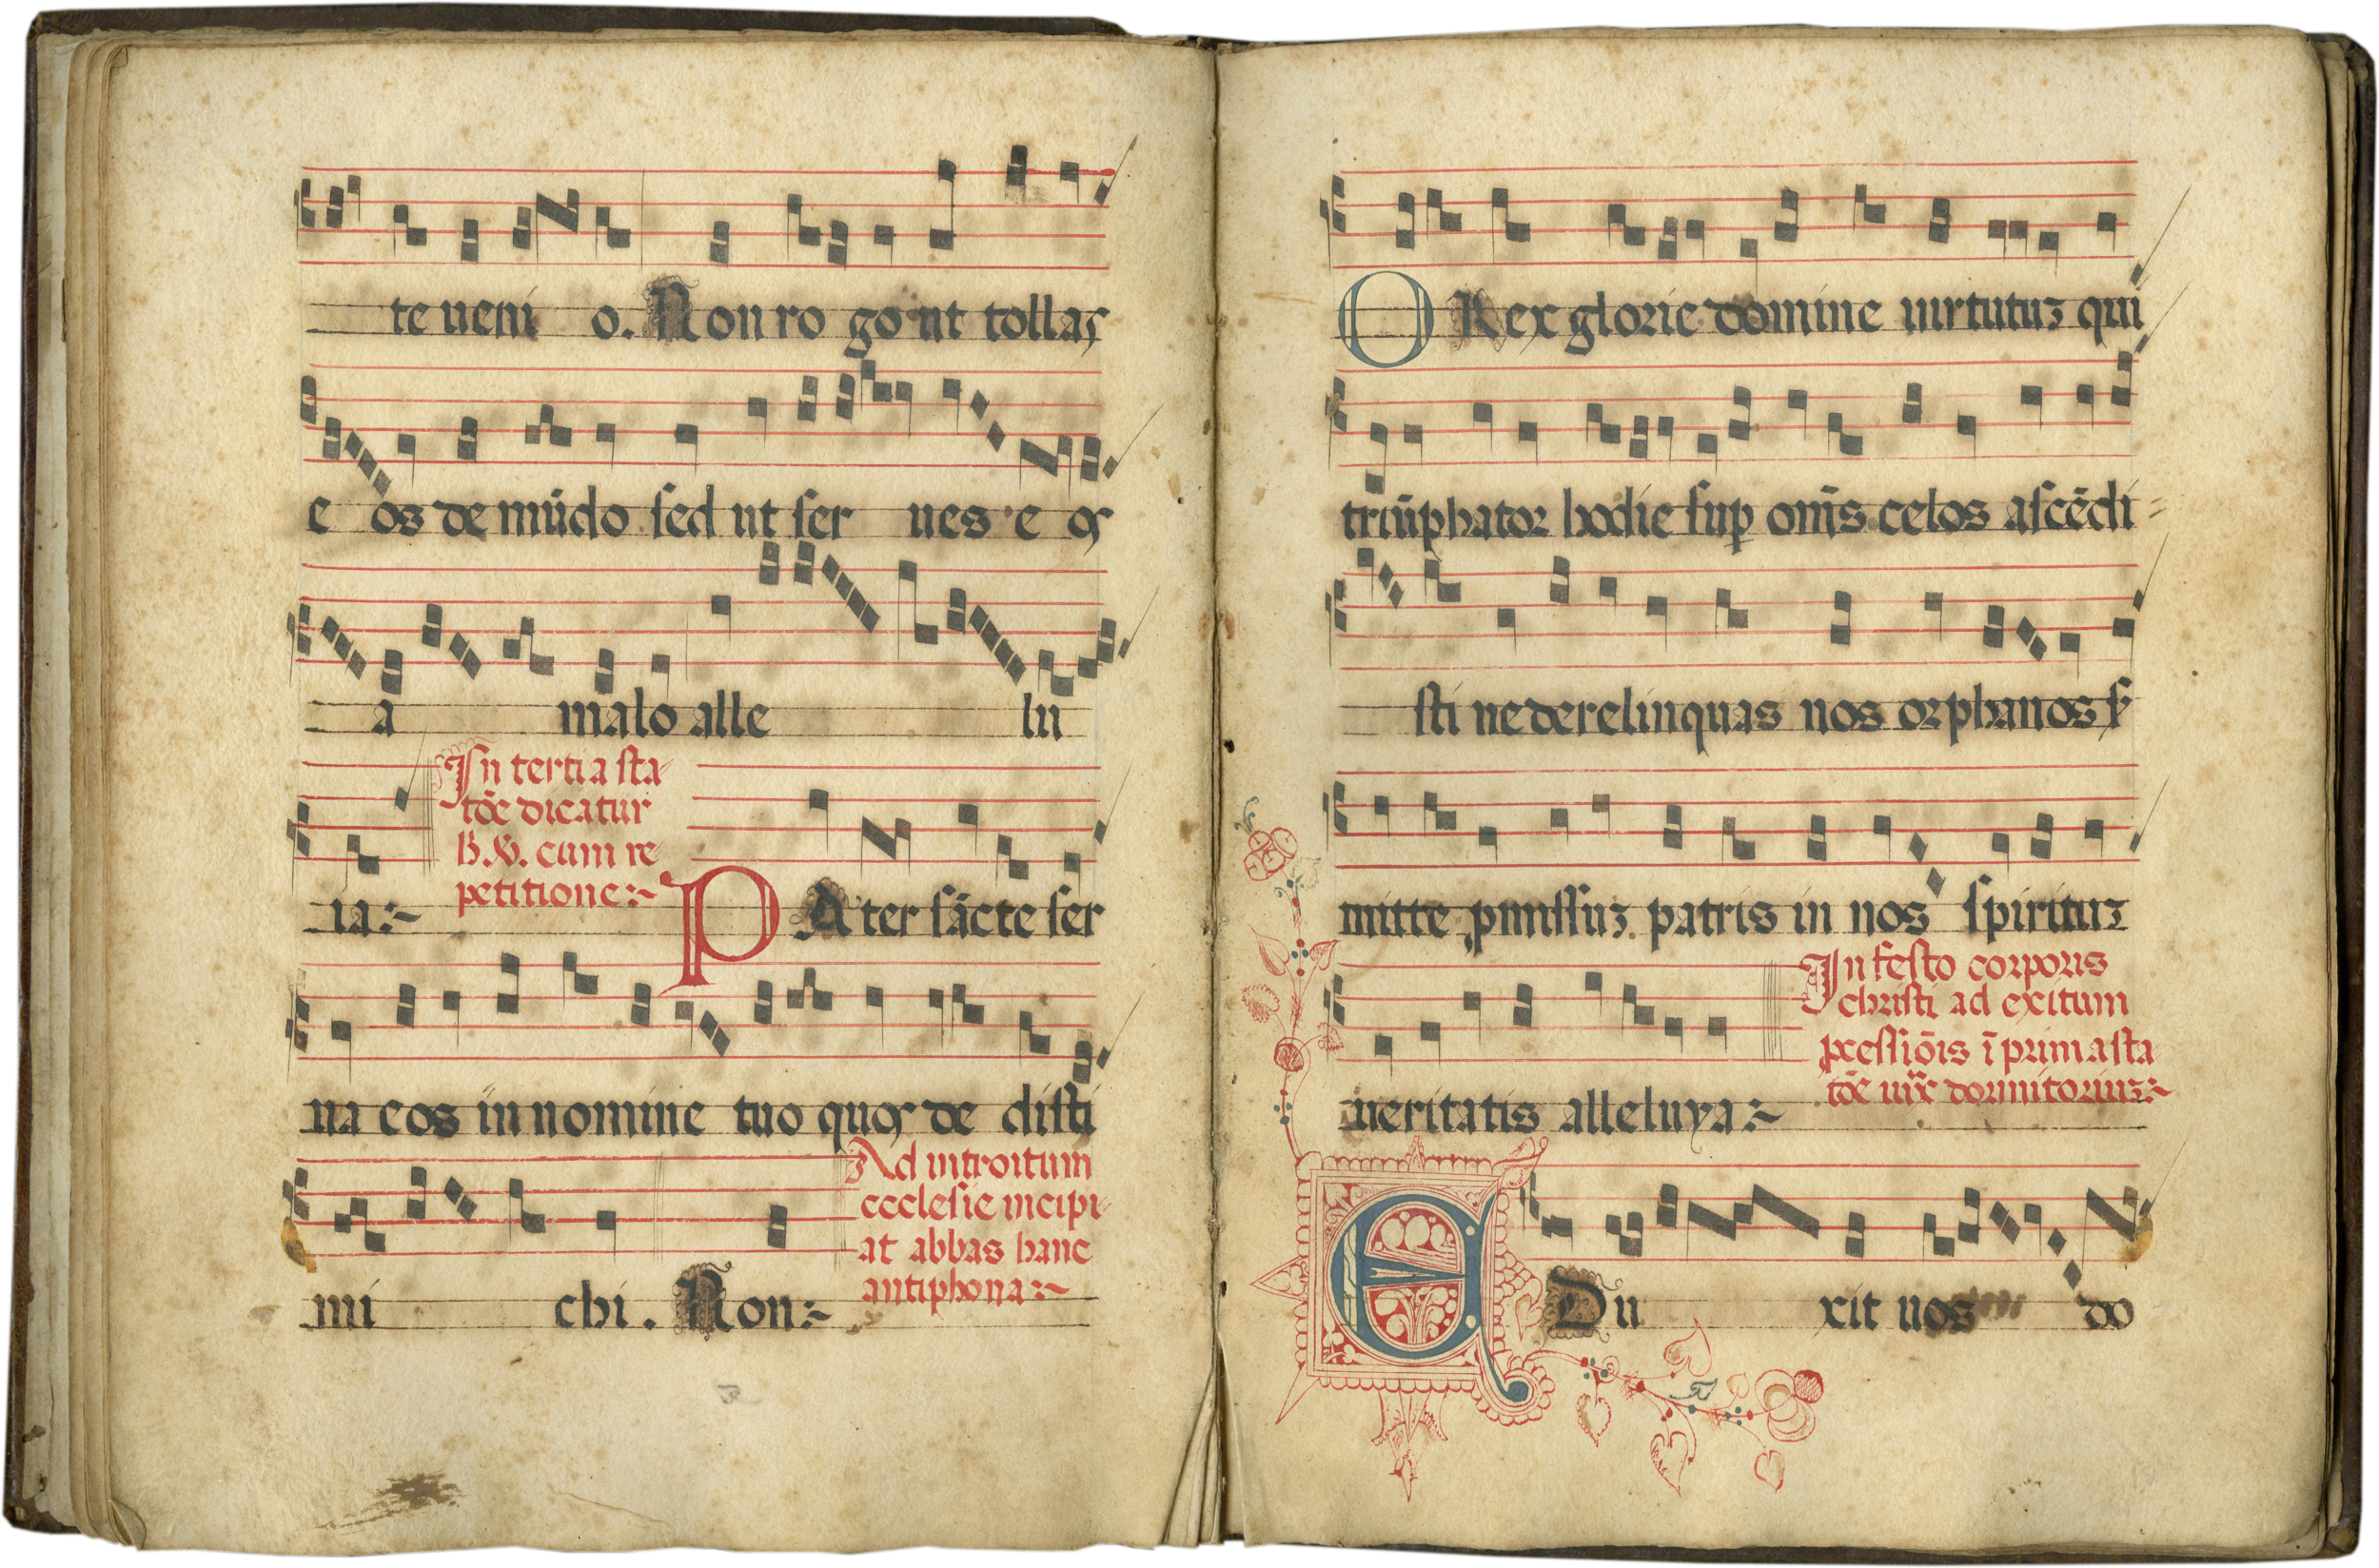 te ueni o. Non ro go ut tollas
e os de mūdo sed ut ser ues e oſ
a malo alle lu
In tertia sta-
tōe dicatur
cum re-
petitione:~
ia:~
PAter sācte ser
na eos in nomine tuo quoſ de disti
Ad introitum
ecclesie incipi-
at abbas hanc
antiphona:~
mi chi. Non:~
O Rex glorie domine uirtutuꝫ qui
triūphator hodie suꝑ om̄s celos ascēdi=
sti ne derelinquas nos orphanos sꝫ
mitte ꝓmissuꝫ patris in nos spirituꝫ
In festo corporis
christi ad exitum
ꝓcessiōis ī prima sta
tōe dormitoriuꝫ:~
ueritatis alleluya:~
EDu xit uos do